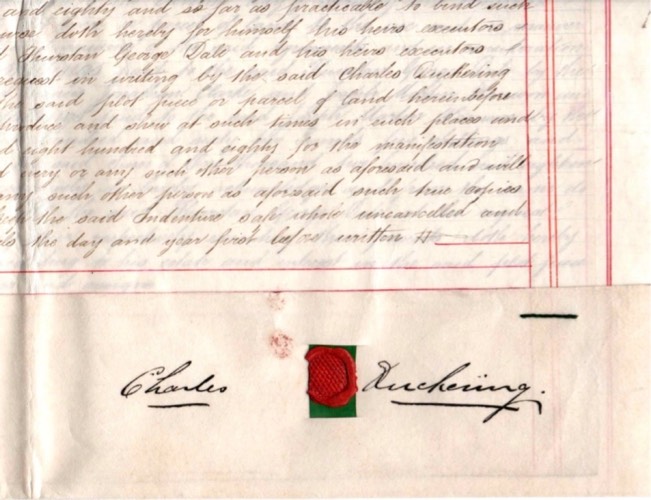 and eighty and so far as practicable to bind such
doth hereby for himself his heirs executors
Thurstan George Dale and his heirs executors
request in writing by the said Charles Duckering
the said plot piece or parcel of land hereinbefore
produce and shew at such times in such places and
eight hundred and eighty for the manifestation
every or any such other person as aforesaid and will
any such other person as aforesaid such true copies
the said Indenture safe whole uncancelled and
the day and year first before written
Charles Duckering.